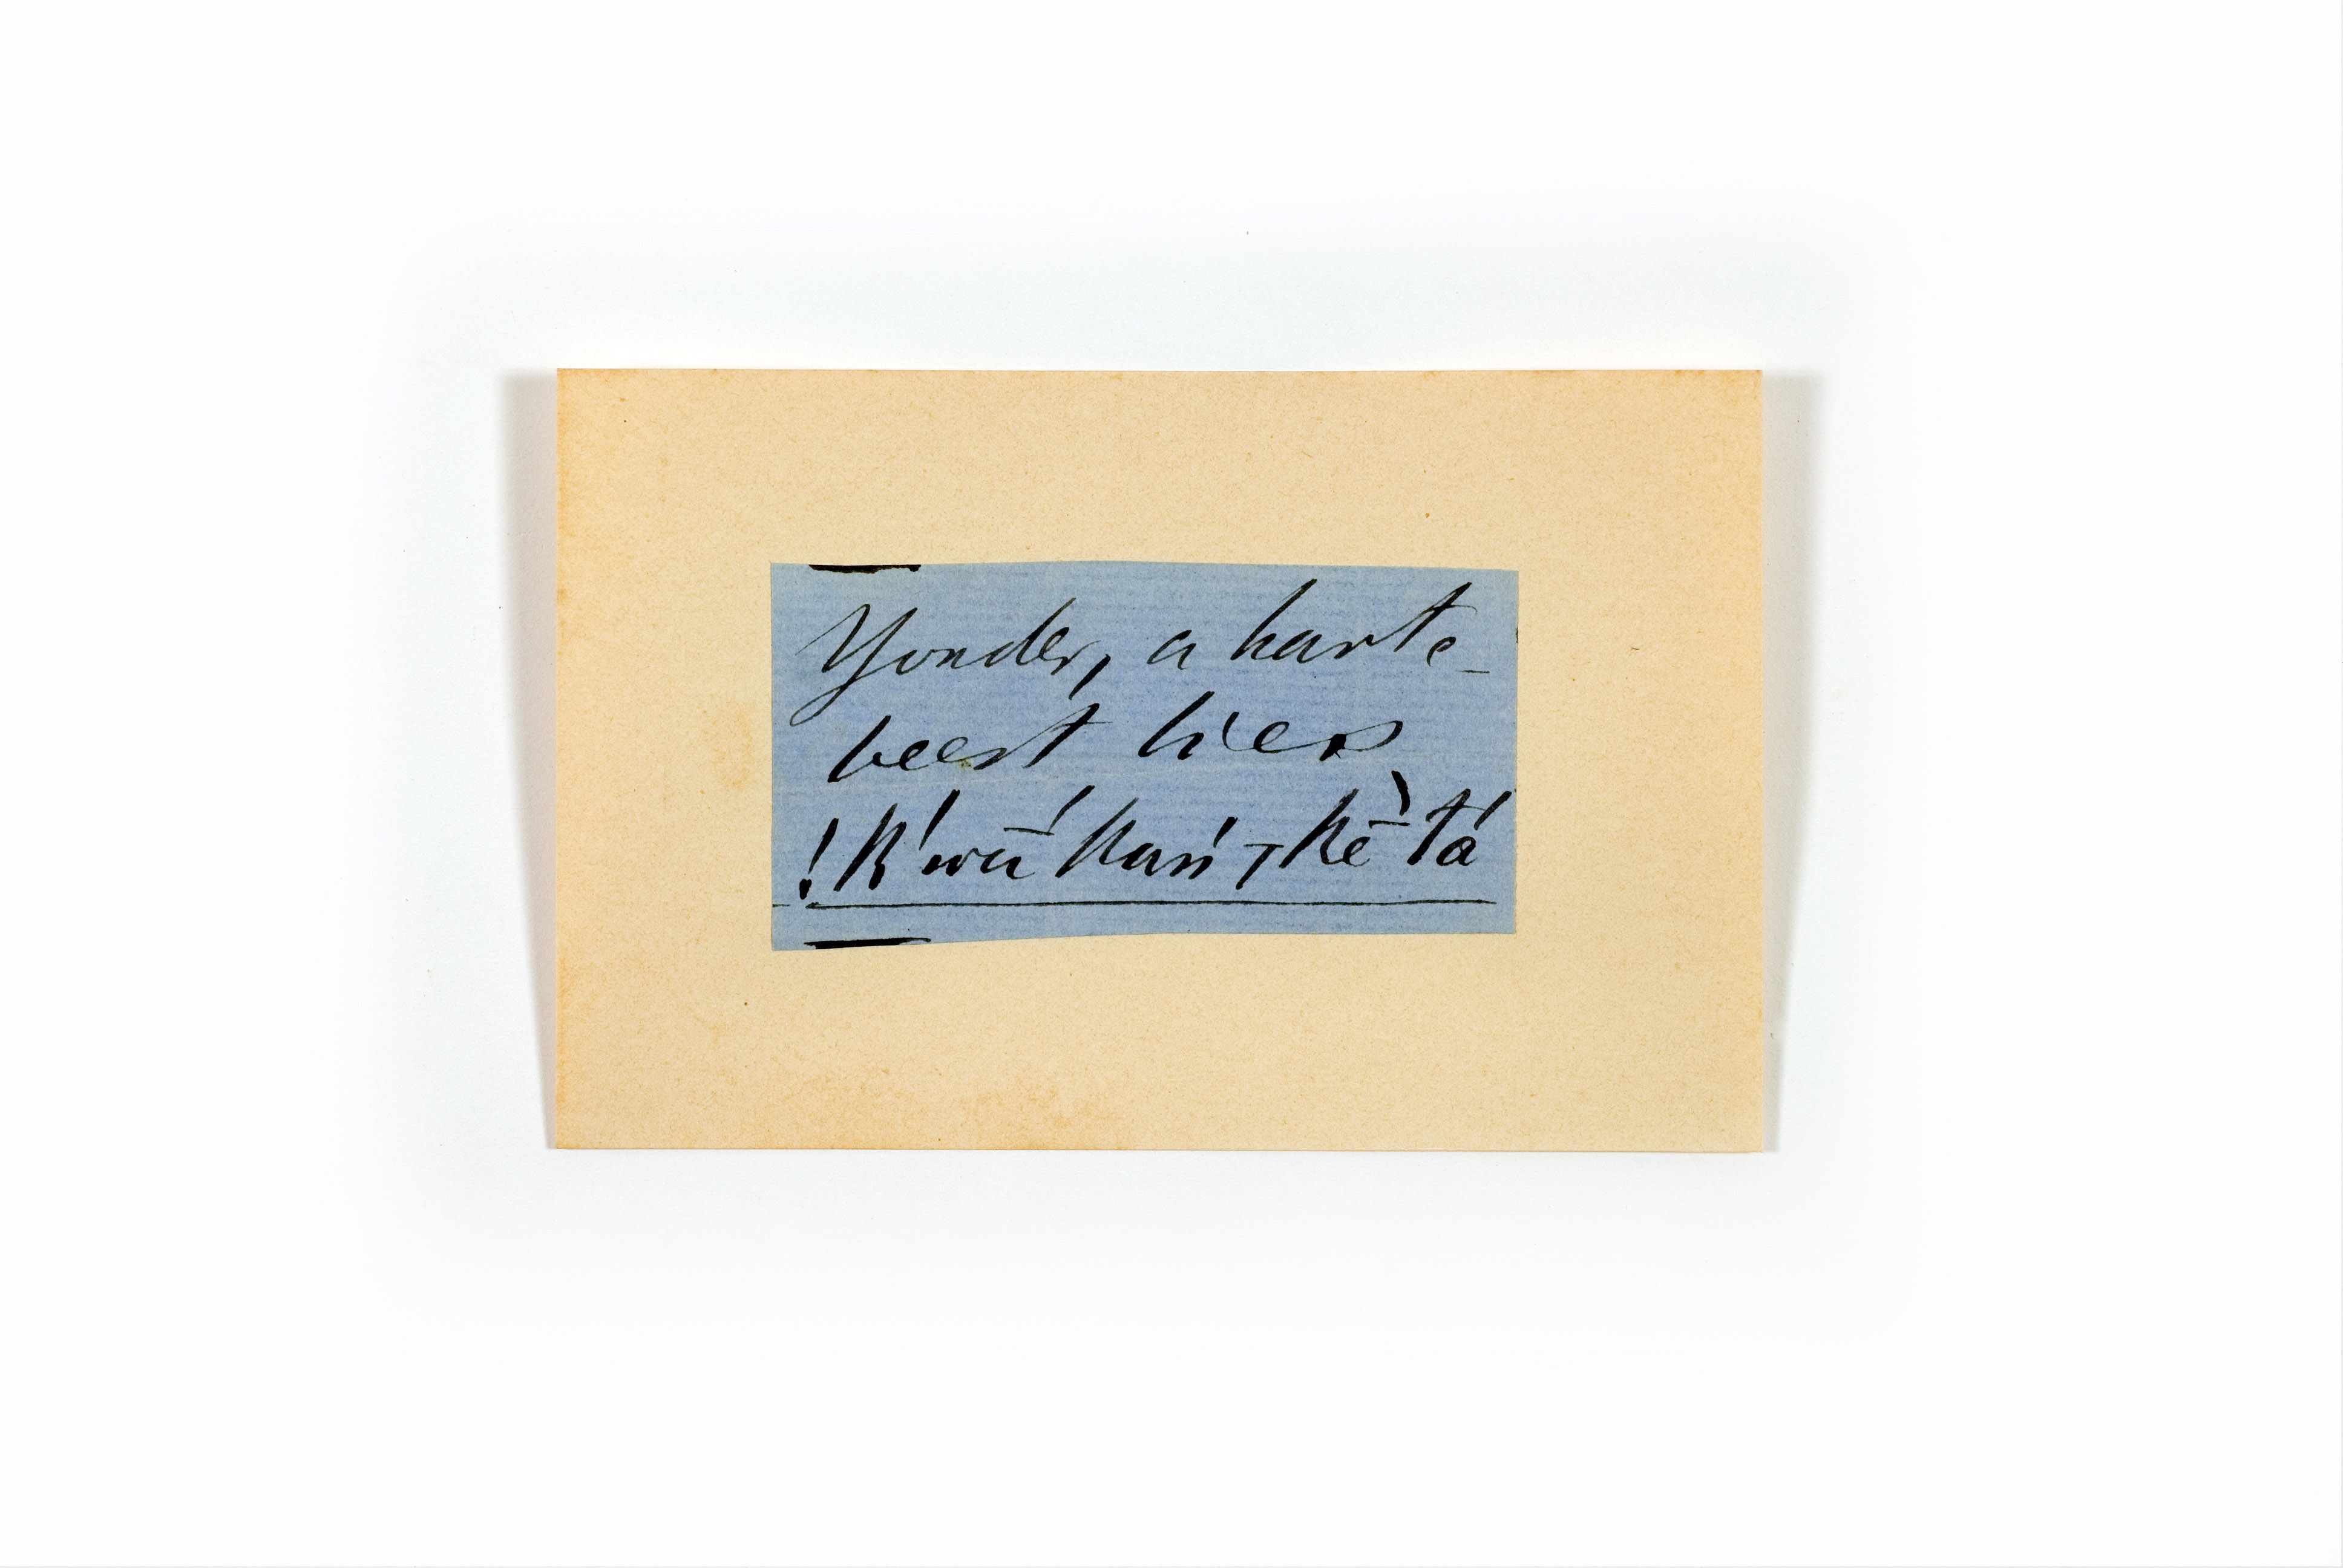 Yonder, a harte-
beest lies
!k'wā́ kaṅ ┬kḕ tá